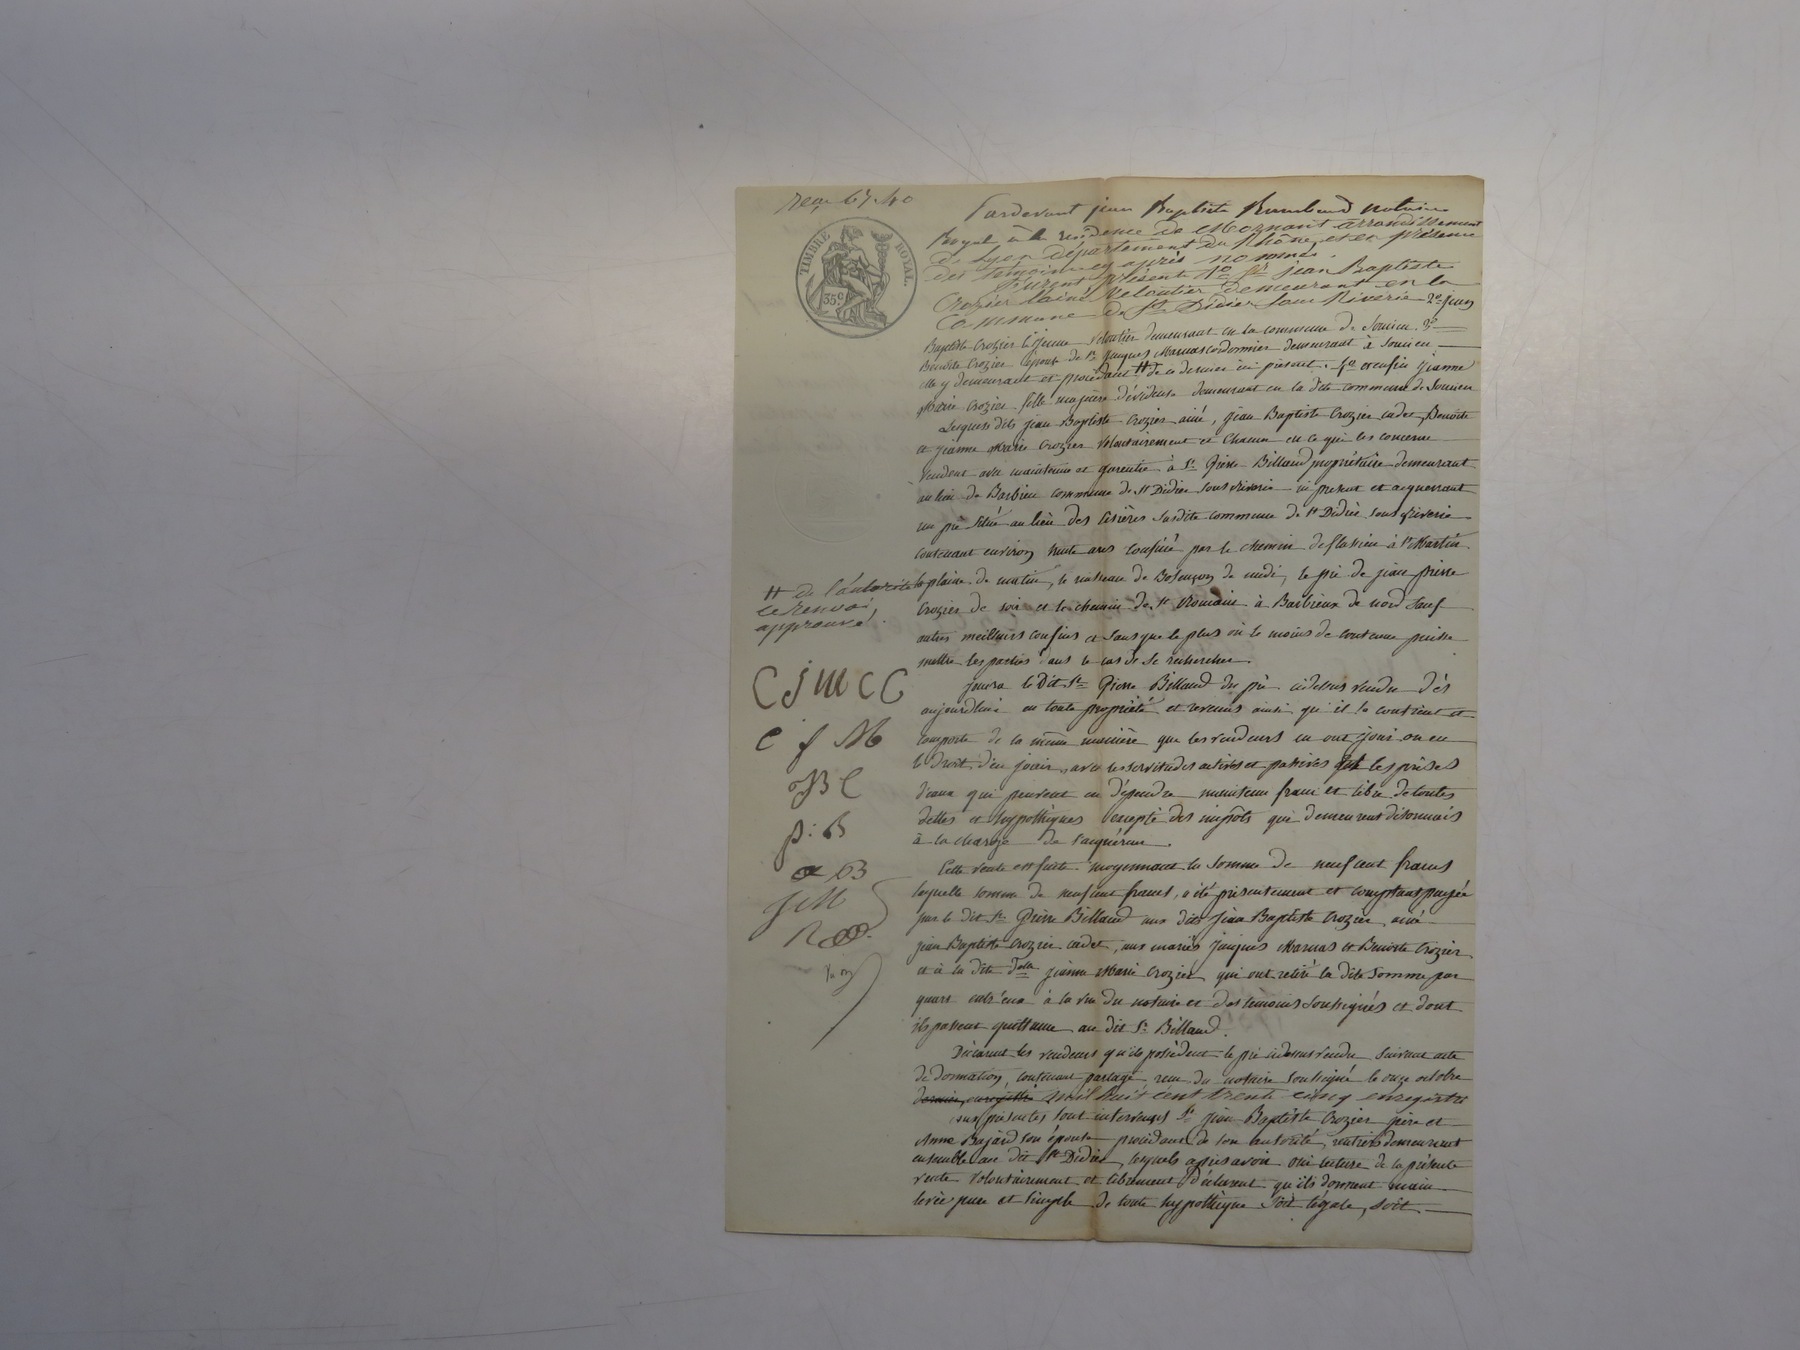 TIMBRE ROYAL.
35c
Pardevant jean Baptiste notaire
Royal à la residence de Mornant arrondissement
de Lyon département du Rhône, et en présence
des temoins cy après nommés.
Furent présent 1o Sr jean Baptiste
Crozier l'ainé veloutier demeurant en la
Commune de St Didier sous Riverie 2o jean
Baptiste Crozier le jeune veloutier demeurant en la commune de Soucieu 3o
Benoite Crozier épouse de Sr jacques Marnas cordonnier demeurant à Soucieu
elle y demeurant et procédant # de ce dernier ici présent. 4o et enfin jeanne
Marie Crozier fille majeure dévideuse demeurant en la dite commune de Soucieu
Lesquels dits jean Baptiste Crozier ainé, jean Baptiste Crozier cadet, Benoite
et jeanne Marie Crozier volontairement et chacun en ce qui les concerne
vendent avec maintenue et garentie à Sr Pierre Billaud propriétaire demeurant
au lieu de Barbieu commune de St Didier sous Riverie ici présent et acquerrant
un pré situé au lieu des susdite commune de St Didier sous Riverie
contenant environ huite ares confiné par le chemin de à St Martin
la plaine de matin, le ruisseau de Bosançon de midi, le pré de jean pierre
Crozier de soir et le chemin de St Romain à Barbieux de nord sauf
autres meilleurs confins et sans que le plus ou le moins de contenue puisse
mettre les parties dans le cas de se rechercher
# de l'autorité
ce renvoi
approuvé.
C J M C C
C f M
J B C
p: B
a B
J M
jouira le dit Sr Pierre Billaud du pré cidessus vendu dès
aujourdhui en toute propriété et revenus ainsi qu'il se contient et
comporte de la même manière que les vendeurs en ont joui ou eu
le droit d'en jouir, avec les servitudes actives et passives et les prises
d'eaux qui peuvent en dépendre maintenu franc et libre de toutes
dettes et hypothèques excepté des impôts qui demeurent désormais
à la charge de l'aquéreur.
Cette vente est faite moyennant la somme de neuf cent francs
laquelle somme de neuf cent francs, a été présentement et comptant payée
par le dit Sr Pierre Billaud aux dits Jean Baptiste Crozier ainé
jean Baptiste Crozier cadet, aux mariés jacques Marnas et Benoite Crozier
et à la dite delle jeanne Marie Crozier qui ont retiré la dite somme par
quart entr'eux à la vue du notaire et des temoins soussignés et dont
ils passent quittance au dit Sr Billaud.
Déclarent les vendeurs qu'ils possèdent le pré cidessus vendu suivant acte
de donnation, contenant partage reçu du notaire soussigné le onze octobre
mil huit cent trente cinq enregistré
aux présentes sont intervenus Sr jean Baptiste Crozier père et
Anne Bajard son épouse procédant de son autorité, rentiers demeurant
ensemble au dit St Didier, lesquels après avoir oui lecture de la présente
vente volontairement et librement déclarent qu'ils donnent main
levée pure et simple de toute hypothèque soit légale, soit